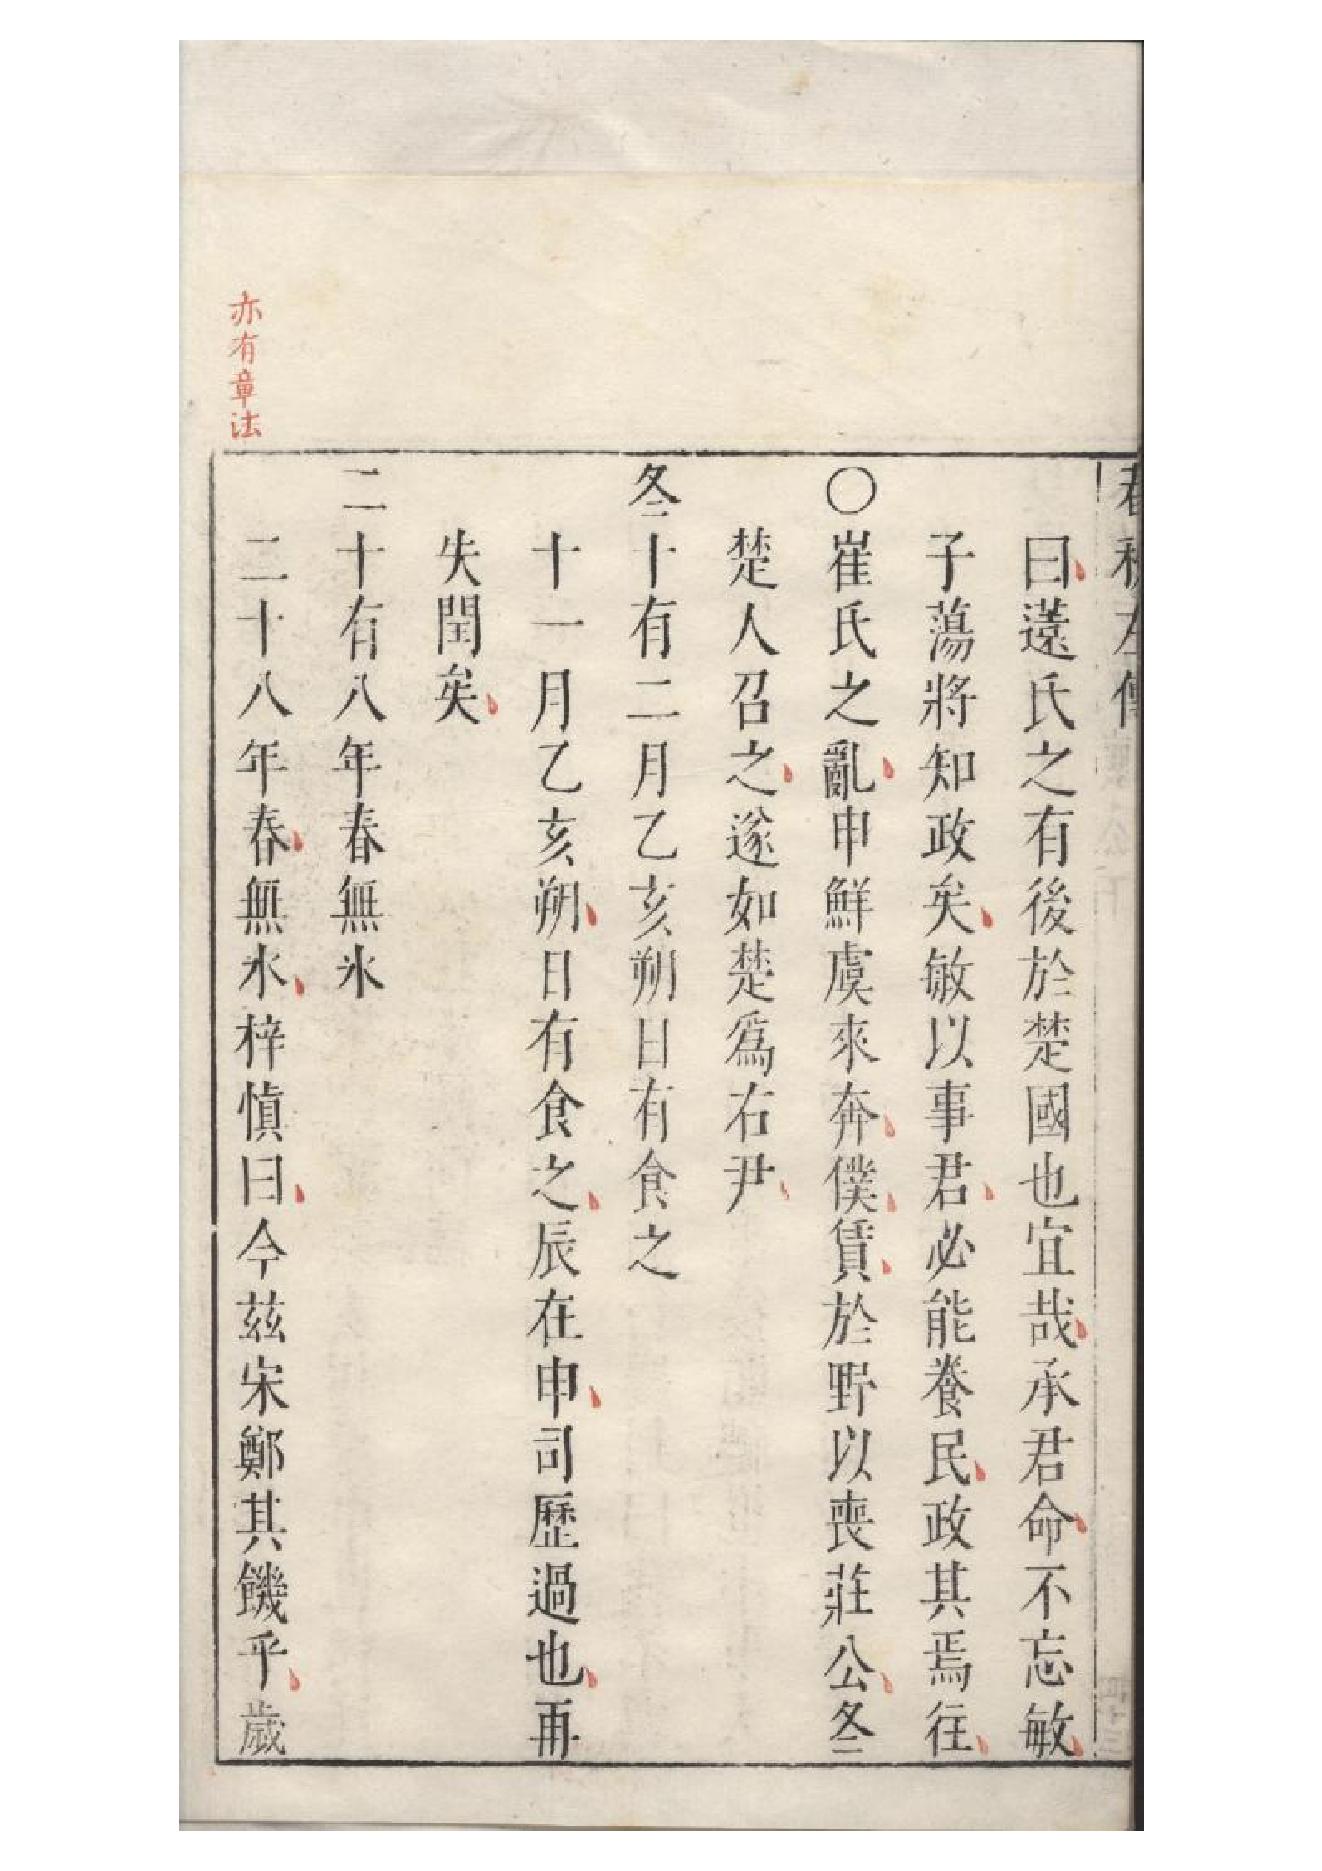 春秋左傳
曰薳氏之有後於楚國也宜哉承君命不忘敏
子蕩將知政矣敏以事君必能養民政其焉往
〇崔氏之亂申鮮虞來奔僕賃於野以喪莊公冬
楚人召之遂如楚爲右尹
冬十有二月乙亥朔日有食之
十一月乙亥朔日有食之辰在申司歷過也再
失閏矣
二十有八年春無氷
二十八年春無氷梓慎曰今玆宋鄭其饑乎歲
亦有章法